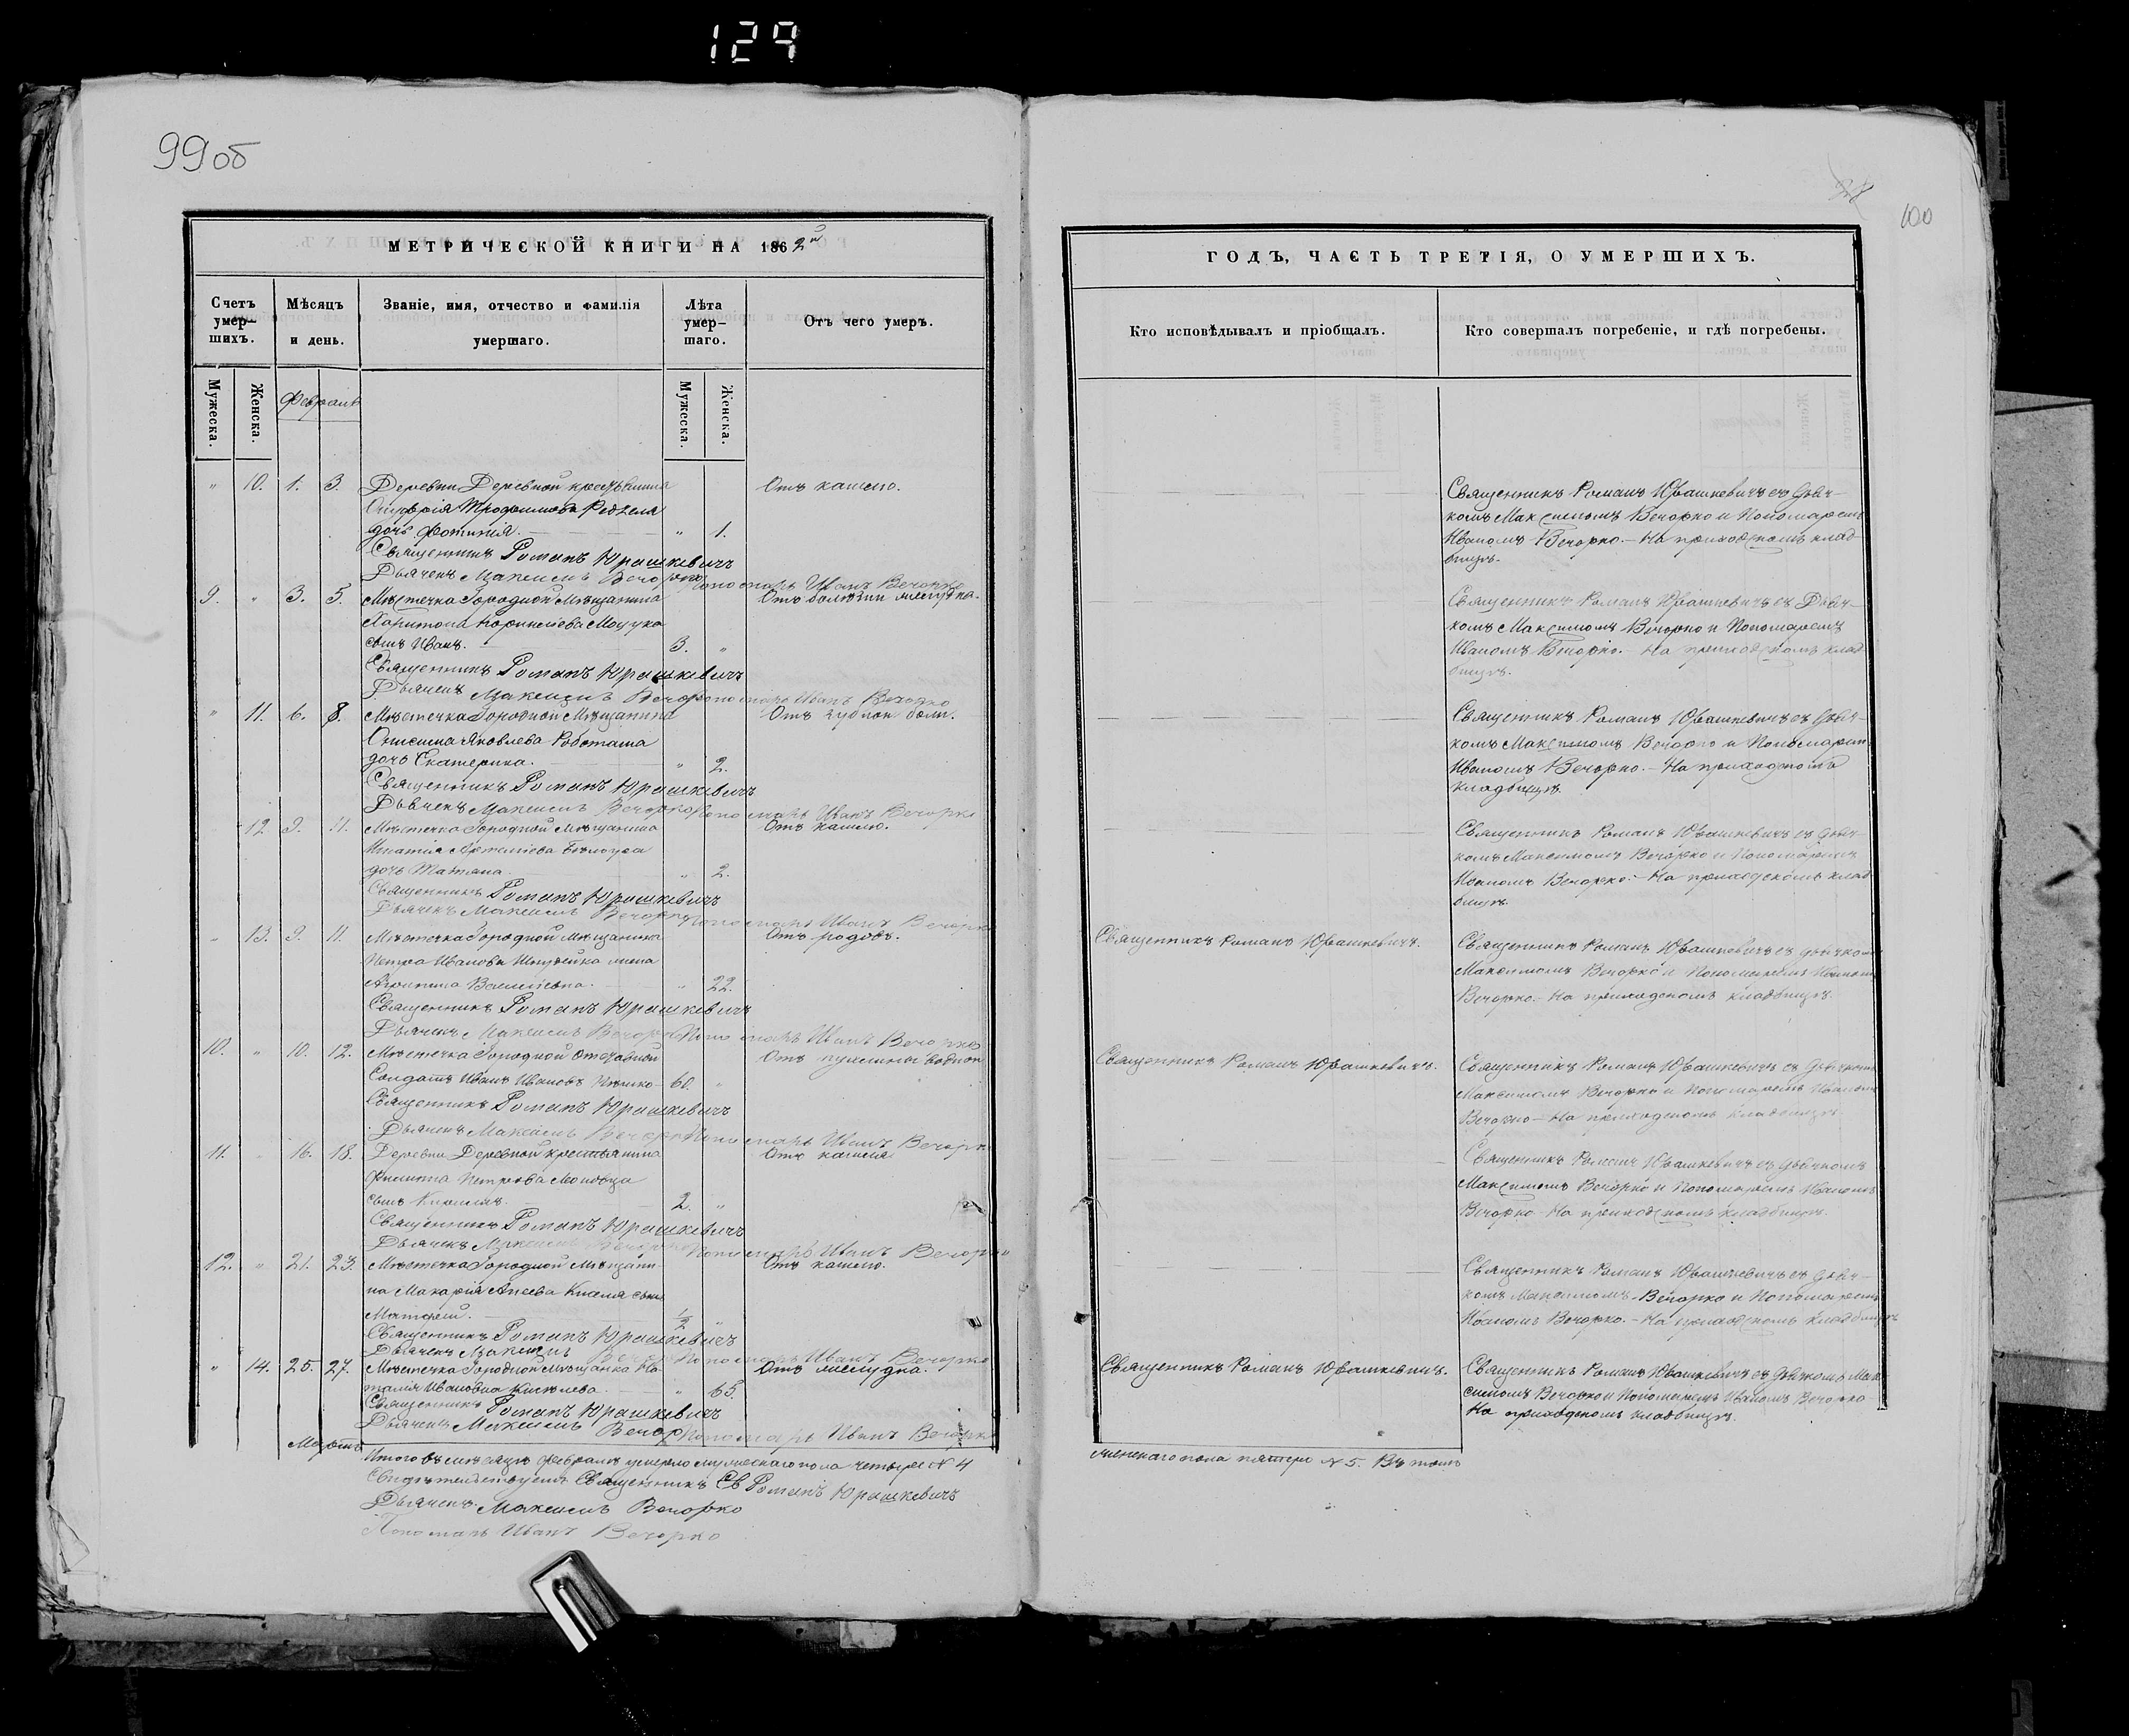 129
99об
МЕТРИЧЕСКОЙ КНИГИ НА 1862й
Счетъ умер-шихъ.
Мѣсяцъ и день.
Званіе, имя, отчество и фамилія умершаго.
Лѣта умер-шаго.
Отъ чего умеръ.
Мужеска.
Женска.
Февраль
Мужеска.
Женска.
" 10. 1. 3. Деревни Деревной крестьянина Отъ кашлю.
Трофимова
дочь Фотинія. " 1.
Священникъ Романъ Юрашкевичъ
Дьячекъ Максимъ Вечорко Пономарь Иванъ Вечорко
9. " 3. 5. Мѣстечка Городной Мѣщанина Отъ болѣзни желудка.
Харитона Корнилѣева Мацука
сынъ Иванъ. 3. "
Священникъ Романъ Юрашкевичъ
Дьячекъ Максимъ Вечорко Пономарь Иванъ Вечорко
" 11. 6. 8. Мѣстечка Городной Мѣщанина Отъ зубной боли.
Онисима Яковлева
дочь Екатерина. " 2.
Священникъ Романъ Юрашкевичъ
Дьячекъ Максимъ Вечорко Пономарь Иванъ Вечорко
12 9. 11. Мѣстечка Городной Мѣщанина Отъ кашлю.
Игнатія Артемѣева
дочь Татіана. " 2.
Священникъ Романъ Юрашкевичъ
Дьячекъ Максимъ Вечорко Пономарь Иванъ Вечорко
" 13. 9. 11. Мѣстечка Городной Мѣщанина Отъ родовъ.
Петра Иванова жена
Васильевна. " 22.
Священникъ Романъ Юрашкевичъ
Дьячекъ Максимъ Вечорко Пономарь Иванъ Вечорко
10. " 10. 12. Мѣстечка Городной Отставной Отъ пухлины водной
Солдатъ Иванъ Ивановъ 60. "
Священникъ Романъ Юрашкевичъ
Дьячекъ Максимъ Вечорко Пономарь Иванъ Вечорко
11. " 16. 18. Деревни Деревной крестьянина Отъ кашля
Филиппа Петрова
сынъ 2. "
Священникъ Романъ Юрашкевичъ
Дьячекъ Максимъ Вечорко Пономарь Иванъ Вечорко
12. " 21. 23. Мѣстечка Городной Мѣщани- Отъ кашлю.
на Макарія сынъ
Матѳей. 1/2 "
Священникъ Романъ Юрашкевичъ
Дьячекъ Максимъ Вечорко Пономарь Иванъ Вечорко
" 14. 25. 27. Мѣстечка Городной Мѣщанка На- Отъ желудка.
талія Ивановна Киселева. " 65.
Священникъ Романъ Юрашкевичъ
Дьячекъ Максимъ Вечорко Пономарь Иванъ Вечорко
Мартъ
Итого въ мѣсяцѣ Февралѣ умерло мужескаго пола четыре N 4
Священникъ Романъ Юрашкевичъ
Дьячекъ Максимъ Вечорко
Пономарь Иванъ Вечорко
100
ГОДЪ, ЧАСТЬ ТРЕТІЯ, О УМЕРШИХЪ.
Кто исповѣдывалъ и пріобщалъ.
Кто совершалъ погребеніе, и гдѣ погребены.
Священникъ Романъ Юрашкевичъ съ Дьяч-
комъ Максимомъ Вечорко и Пономаремъ
Иваномъ Вечорко. - На приходскомъ клад-
бищѣ.
Священникъ Романъ Юрашкевичъ съ Дьяч-
комъ Максимомъ Вечорко и Пономаремъ
Иваномъ Вечорко. - На приходскомъ клад-
бищѣ.
Священникъ Романъ Юрашкевичъ съ Дьяч-
комъ Максимомъ Вечорко и Пономарем
Иваномъ Вечорко. - На приходскомъ
кладбищѣ.
Священникъ Романъ Юрашкевичъ съ Дьяч-
комъ Максимомъ Вечорко и Пономаремъ
Иваномъ Вечорко. - На приходскомъ клад
бищѣ.
Священникъ Романъ Юрашкевичъ.
Священникъ Романъ Юрашкевичъ съ Дьячкомъ
Максимомъ Вечорко и Пономаремъ Иваномъ
Вечорко. - На приходскомъ кладбищѣ.
Священникъ Романъ Юрашкевичъ.
Священникъ Романъ Юрашкевичъ съ Дьячкомъ
Максимомъ Вечорко и Пономаремъ Иваномъ
Вечорко - На приходскомъ кладбищѣ.
Священникъ Романъ Юрашкевичъ съ Дьячкомъ
Максимомъ Вечорко и Пономаремъ Иваномъ
Вечорко - На приходскомъ кладбищѣ.
Священникъ Романъ Юрашкевичъ съ Дьяч-
комъ Максимомъ Вечорко и Пономаремъ
Иваномъ Вечорко. - На приходскомъ кладбищѣ
Священникъ Романъ Юрашкевичъ.
Священникъ Романъ Юрашкевичъ съ Дьячкомъ Мак
симомъ Вечорко и Пономаремъ Иваномъ Вечорко
На приходскомъ кладбищѣ.
женскаго пола пятеро N 5. Въ томъ